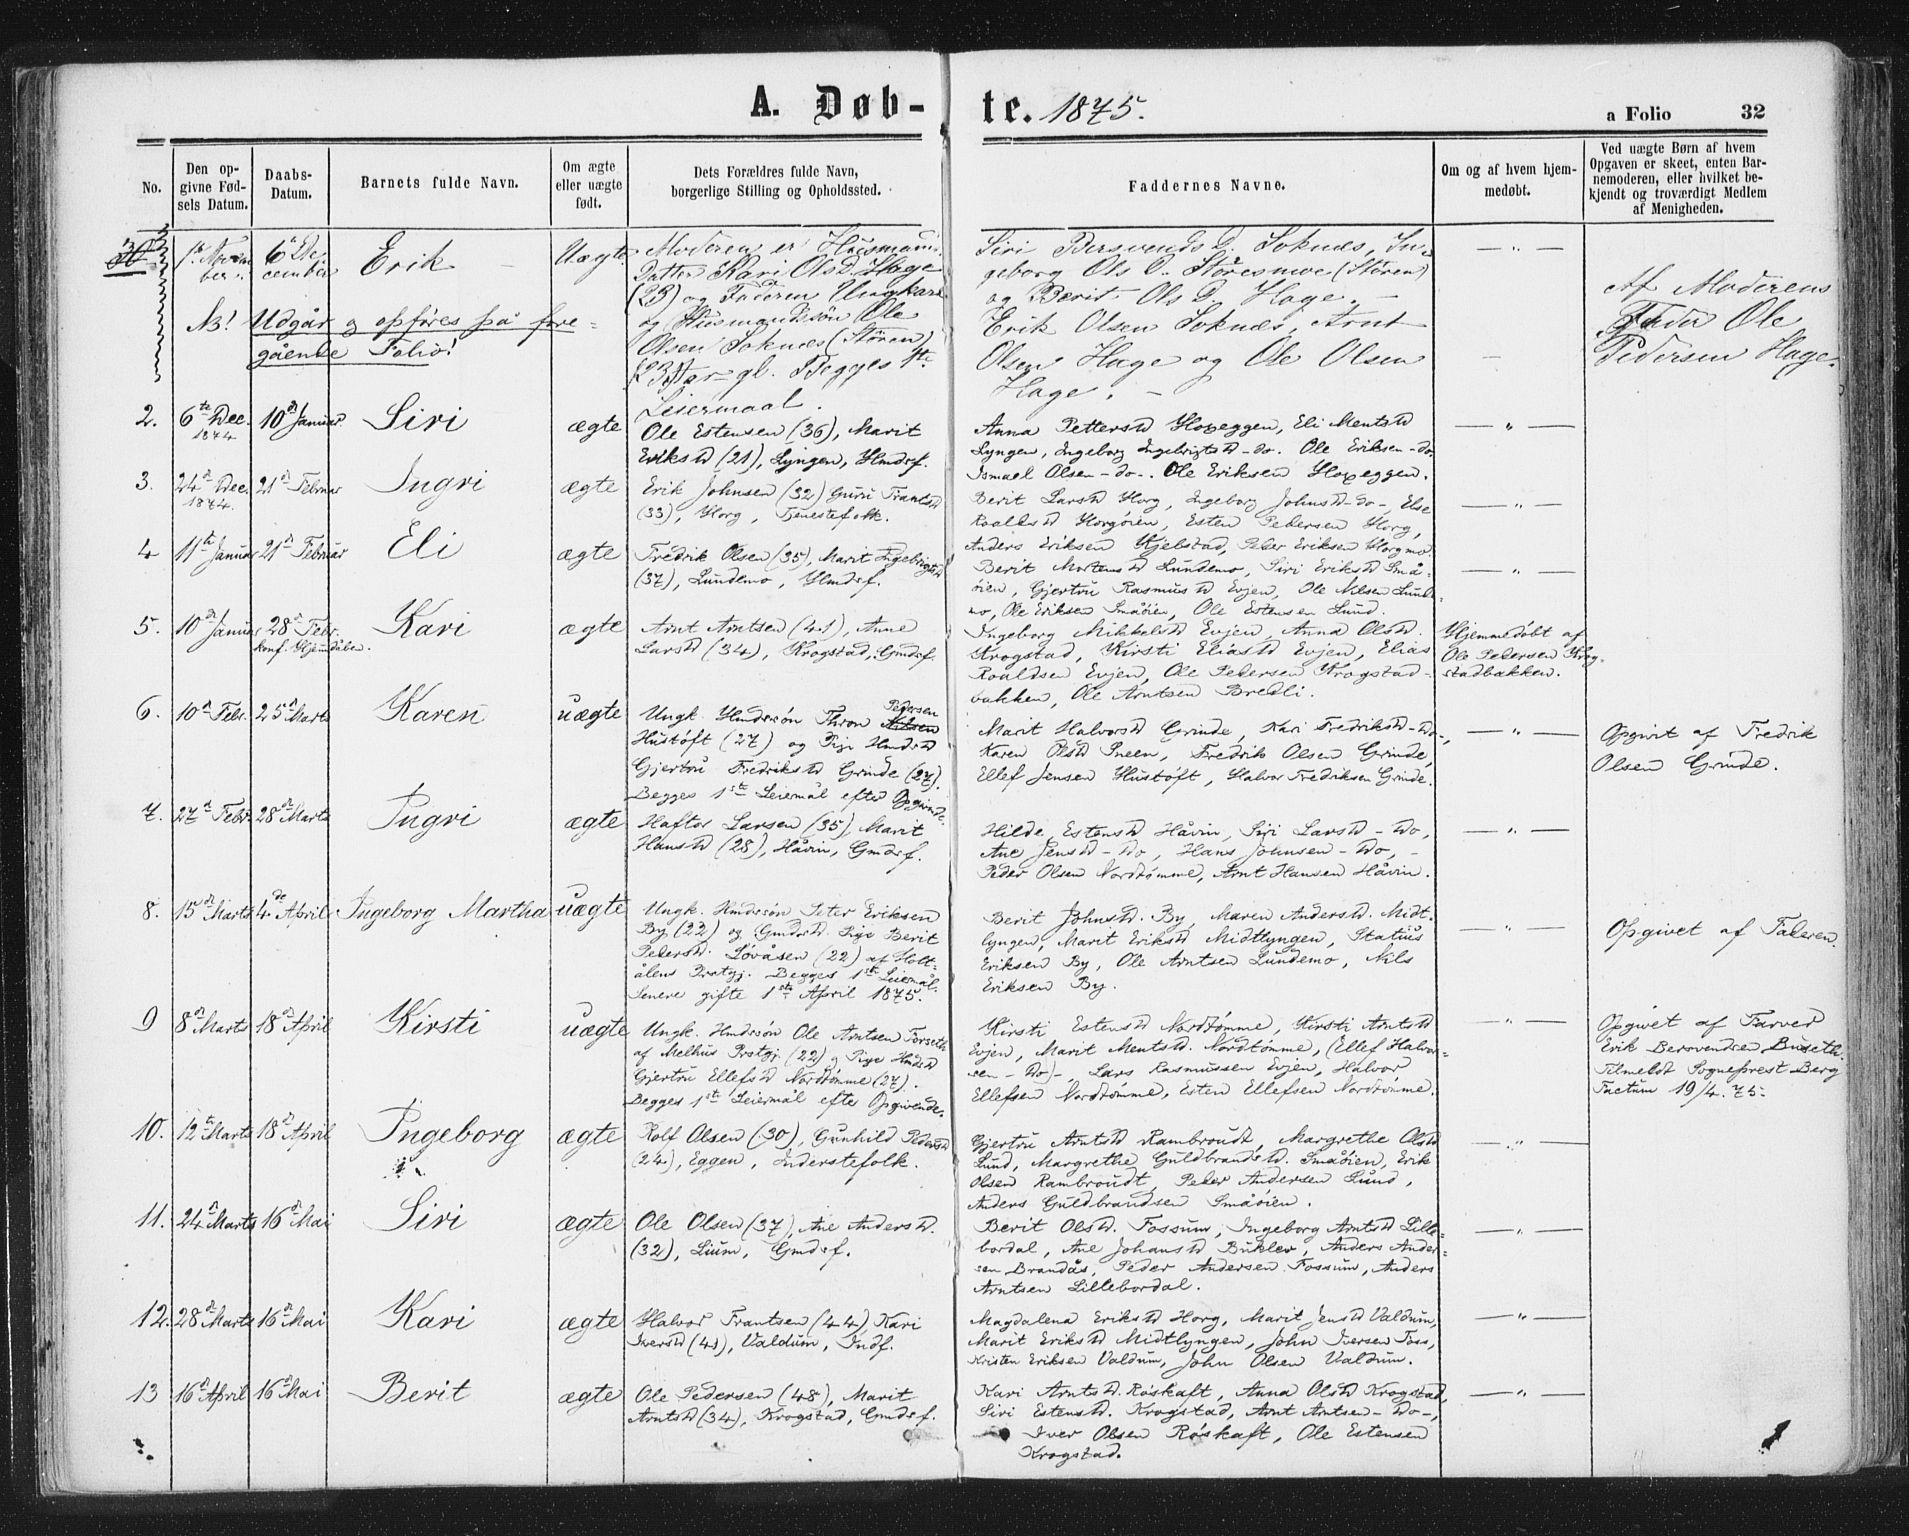 A. Døb- te. 1875.
a Folio 32
No.
Den op-
givne Fød-
sels Datum.
Daabs-
Datum.
Barnets fulde Navn.
Om ægte
eller uægte
født.
Dets Forældres fulde Navn,
borgerlige Stilling og Opholdssted.
Faddernes Navne.
Om og af hvem hjem-
medøbt.
Ved uægte Børn af hvem
Opgaven er skeet, enten Bar-
nemoderen, eller hvilket be-
kjendt og troværdigt Medlem
af Menigheden.
1ste Novem
ber.
6te De-
cember
Erik
Uægte
Moderen er Husmands
Datter Kari OlsD. Hage
(23) og Faderen Ungkarl
og Husmandssøn Ole
Olsen Soknæs (Støren)
23 Aar gl. Begges 1ste
Leiermaal.
NB! Udgår og opføres på fore-
gående Folio!
Siri Bersvends D. Soknæs, In-
geborg Ols D. Støresmoe (Støren)
og Berit Ols D. Hage.
Erik Olsen Soknæs, Arnt
Olsen Hage og Ole Olsen
Hage.
— " —
Af Moderens
Fader Ole
Pedersen Hage.
2. 6te Dec.
1874
10de Januar
Siri
ægte
Ole Estensen (36), Marit
Eriksd (21), Lyngen, Hmdsf.
Anna Pettersd Hoxeggen, Eli Mentsd
Lyngen, Ingeborg Ingebrigtsd - do. Ole Eriksen - do.
Ismael Olsen - do -. Ole Eriksen Hoxeggen.
— " —
3. 24de Dec.
1874.
21de Februar
Ingri
ægte
Erik Johnsen (32) Guru Frantsd
(33), Horg, Tjenestefolk.
Berit Larsd Horg, Ingeborg Johnsd - do -, Else
Roaldsd Horgøien, Esten Pedersen Horg,
Anders Eriksen Kjelstad, Peder Eriksen Horgmo.
— " —
4 11te Januar 21de Februar
Eli
ægte
Fredrik Olsen (35), Marit Ingebrigtsd
(37), Lundemo, Hmdsf.
Berit Mortensd Lundemo, Siri Eriksd Små-
øien, Gjertru Rasmusd Evjen, Ole Nilsen Lunde-
mo, Ole Eriksen Småøien, Ole Estensen Lund.
— " —
5. 10de Januar 28de Febr.
konf. Hjemdåben.
Kari
ægte
Arnt Arntsen (41), Anne
Larsd (34), Krogstad, Gmdsf.
Ingeborg Mikkelsd Evjen, Anna Olsd.
Krogstad, Kirsti Eliasd Evjen, Elias
Roaldsen Evjen, Ole Pedersen Krogstad-
bakken, Ole Arntsen Bredli.
Hjemmedøbt af
Ole Pedersen Krog-
stadbakken.
6. 10de Febr. 25de Marts
Karen
uægte
Ungk. Hmdssøn Thron Nilsen Pedersen
Hustøft (27) og Pige Hmdsd
Gjertru Fredriksd Grinde (27).
Begges 1ste Leiemål efter Opgivende.
Marit Halvorsd Grinde, Kari Fredriksd - Do -,
Karen Olsd Sneen, Fredrik Olsen Grinde,
Ellef Jensen Hustøft, Halvor Fredriksen Grinde.
— " —
Opgivet af Fredrik
Olsen Grinde.
7. 27de Febr. 28de Marts
Ingri
ægte
Haftor Larsen (35), Marit
Hansd (28), Håvin, Gmdsf.
Hilde Estensd Håvin, Siri Larsd - Do,
Ane Jensd - Do, Hans Johnsen - Do,
Peder Olsen Nordtømme, Arnt Hansen Håvin.
— " —
8. 15de Marts 4de April
Ingeborg Martha
uægte
Ungk. Hmdssøn Peter Eriksen
By (22) og Gmdsd. Pige Berit
Pedersd. Løvåsen (22) af Holt-
ålens Prstgj. Begges 1ste Leiemål.
Senere gifte 1ste April 1875.
Berit Johnsd. By, Maren Andersd. Midt-
lyngen, Marit Eriksd Midtlyngen, Statius
Eriksen By, Ole Arntsen Lundemo, Nils
Eriksen By.
— " —
Opgivet af Faderen.
9 8de Marts 18de April
Kirsti
uægte
Ungk. Hmdssøn Ole Arntsen Forseth
af Melhus Prstgj. (22) og Pige Hmdsd
Gjertru Ellefsd Nordtømme (27).
Begges 1ste Leiemål efter Opgivende.
Kirsti Estensd Nordtømme, Kirsti Arntsd
Evjen, Marit Mentsd. Nordtømme, (Ellef Halvor-
sen - Do) - Lars Rasmussen Evjen, Halvor
Ellefsen Nordtømme, Esten Ellefsen Nordtømme.
— " —
Opgivet af Farver
Erik Bersvendsen Buseth.
Tilmeldt Sogneprest Berg
Factum 19/4. 75.
10. 12te Marts 18de April
Ingeborg
ægte
Rolf Olsen (30), Gunhild Pedersd
(24), Eggen, Inderstefolk.
Gjertru Arntsd Rambroudt, Margrethe Olsd
Lund, Margrethe Guldbrandsd. Småøien, Erik
Olsen Rambroudt, Peder Andersen Lund,
Anders Guldbrandsen Småøien.
— " —
11. 24de Marts 16de Mai
Siri
ægte
Ole Olsen (37), Ane Andersd.
(32), Lium, Gmdsf.
Berit Olsd. Fossum, Ingeborg Arntsd Lille-
bordal, Ane Johansd Bukler, Anders Ander-
sen Brandås, Peder Andersen Fossum, Anders
Arntsen Lillebordal.
— " —
12. 28de Marts 16de Mai
Kari
ægte
Halvor Frantsen (44) Kari
Iversd (41), Valdum, Indf.
Magdalena Eriksd Horg, Marit Jensd Valdum,
Marit Eriksd Midtlyngen, John Iversen Foss,
Kristen Eriksen Valdum, John Olsen Valdum.
— " —
13 16de April 16de Mai
Berit
ægte
Ole Pedersen (48), Marit
Arntsd (34), Krogstad, Gmdsf.
Kari Arntsd. Røskaft, Anna Olsd Krogstad,
Siri Estensd. Krogstad, Arnt Arntsen - Do -,
Iver Olsen Røskaft, Ole Estensen
Krogstad.
— " —